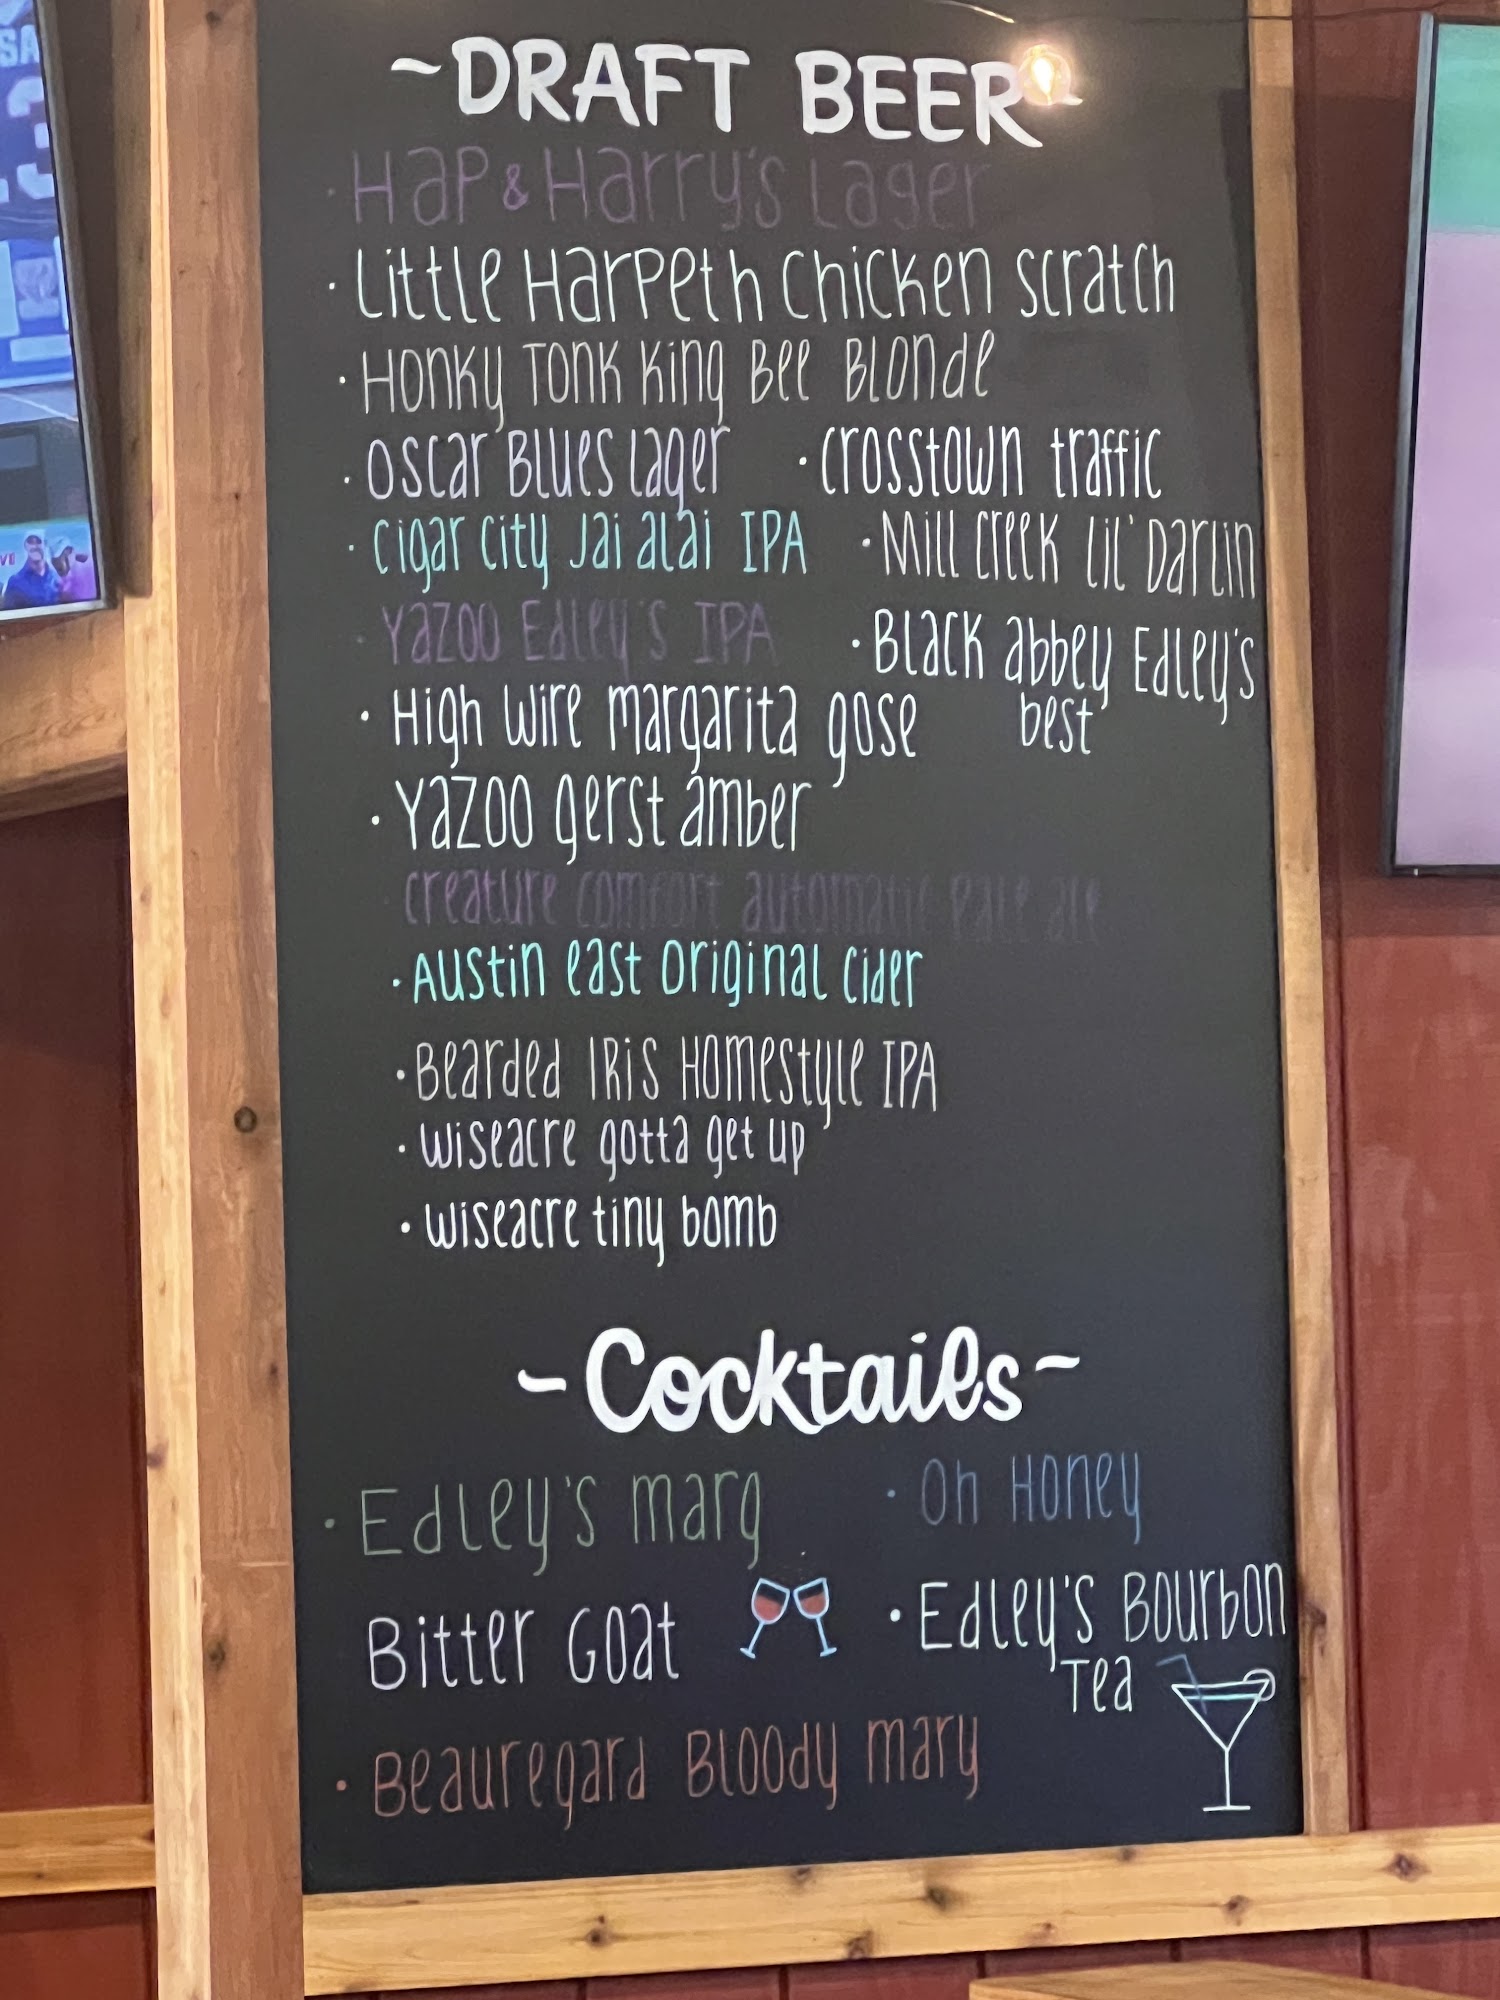 ~DRAFT BEER~
· Hap & Harry's Lager
· Little Harpeth Chicken scratch
· Honky Tonk King Bee Blonde
· Oscar Blues Lager · Crosstown traffic
· Cigar City Jai alai IPA · Mill Creek Lil' Darlin
· Yazoo Edley's IPA · Black abbey Edley's
best
· High wire margarita gose
· Yazoo gerst amber
· Creature comfort automatic pale ale
· Austin east original cider
· Bearded Iris Homestyle IPA
· wiseacre gotta get up
· wiseacre tiny bomb
~Cocktails~
· Edley's marg · Oh Honey
Bitter Goat · Edley's Bourbon
Tea
· Beauregard Bloody mary